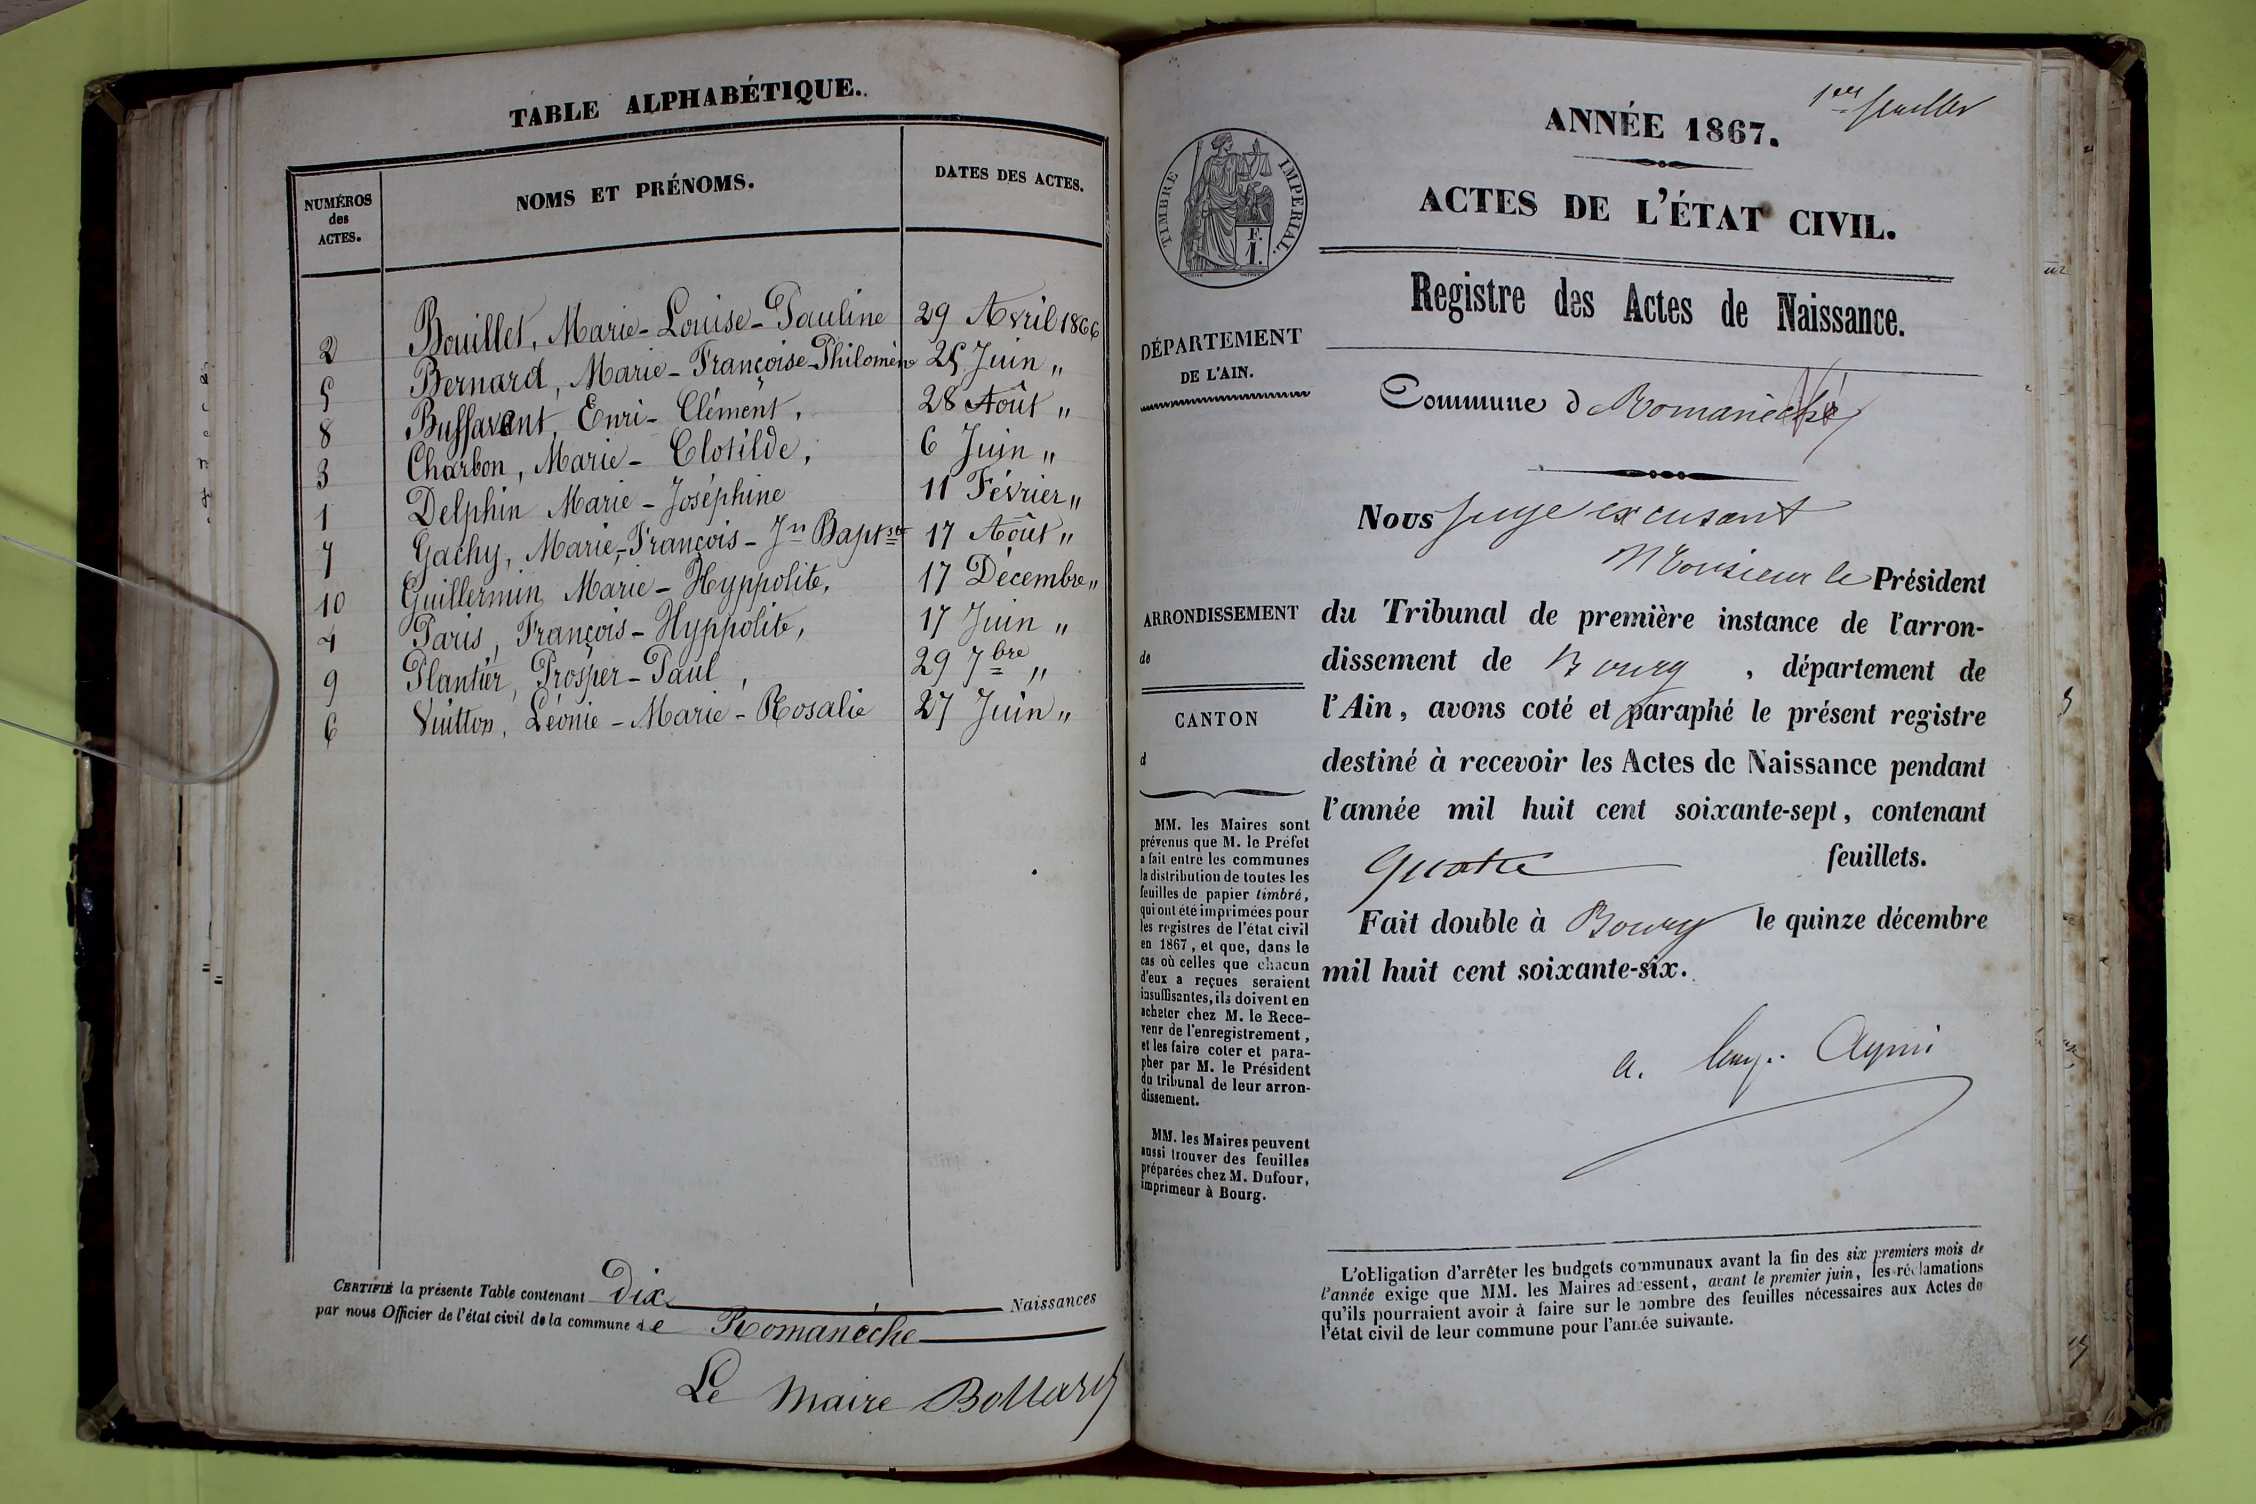 TABLE ALPHABÉTIQUE.
NUMÉROS des ACTES.
NOMS ET PRÉNOMS.
DATES DES ACTES.
2 Bouillet, Marie-Louise-Pauline 29 Avril 1866
5 Bernard, Marie-Françoise-Philomène 25 Juin "
8 Buffavent, Enri-Clément, 28 Août "
3 Charbon, Marie-Clotilde, 6 Juin "
1 Delphin Marie-Joséphine 11 Février "
7 Gachy, Marie-François-Jn Baptste 17 Août "
10 Guillermin Marie-Hyppolite, 17 Décembre "
4 Paris, François-Hyppolite, 17 Juin "
9 Plantier, Prosper-Paul, 29 7bre "
6 Vuitton, Léonie-Marie-Rosalie 27 Juin "
CERTIFIÉ la présente Table contenant dix Naissances
par nous Officier de l'état civil de la commune de Romanèche
Le Maire
1er feuillet
ANNÉE 1867.
ACTES DE L'ÉTAT CIVIL.
TIMBRE IMPERIAL.
F.
1.
Registre des Actes de Naissance.
DÉPARTEMENT
DE L'AIN.
Commune d Romanèche
Nous Juge excusant
Monsieur le Président
ARRONDISSEMENT
de
du Tribunal de première instance de l'arron-
dissement de Bourg, département de
CANTON
d
l'Ain, avons coté et paraphé le présent registre
destiné à recevoir les Actes de Naissance pendant
l'année mil huit cent soixante-sept, contenant
quatre feuillets.
Fait double à Bourg le quinze décembre
mil huit cent soixante-six.
MM. les Maires sont
prévenus que M. le Préfet
a fait entre les communes
la distribution de toutes les
feuilles de papier timbré,
qui ont été imprimées pour
les registres de l'état civil
en 1867, et que, dans le
cas où celles que chacun
d'eux a reçues seraient
insuffisantes, ils doivent en
acheter chez M. le Rece-
veur de l'enregistrement,
et les faire coter et para-
pher par M. le Président
du tribunal de leur arron-
dissement.
MM. les Maires peuvent
aussi trouver des feuilles
préparées chez M. Dufour,
imprimeur à Bourg.
L'obligation d'arrêter les budgets communaux avant la fin des six premiers mois de
l'année exige que MM. les Maires adressent, avant le premier juin, les réclamations
qu'ils pourraient avoir à faire sur le nombre des feuilles nécessaires aux Actes de
l'état civil de leur commune pour l'année suivante.